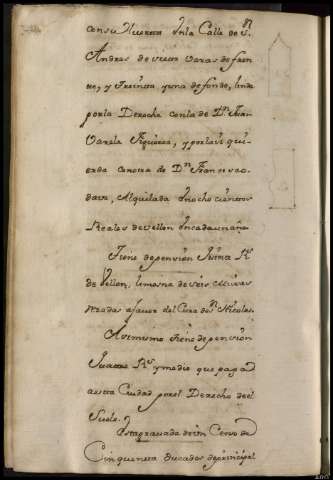 con su Huerta En la Calle de Sn.
Andres de siete varas de fren
te, y treinta y una de fondo, linda
por la Derecha con la de Dn. Juan
Varela Figueroa, y por la iz quier
erda con otra de Dn. Francisco
Alquilada En ocho cientos
Reales de vellon En cada un año
Tiene de pension Rs.
de Vellon, limosna de seis Missas
Rezadas á favor del Cura de Sn. Nicolas.
Asimismo tiene de pension
Quatro Rs. y medio que paga
a esta Ciudad por el Derecho de el
Suelo.
Esta gravada de un Censo de
Cinquenta Ducados de principal